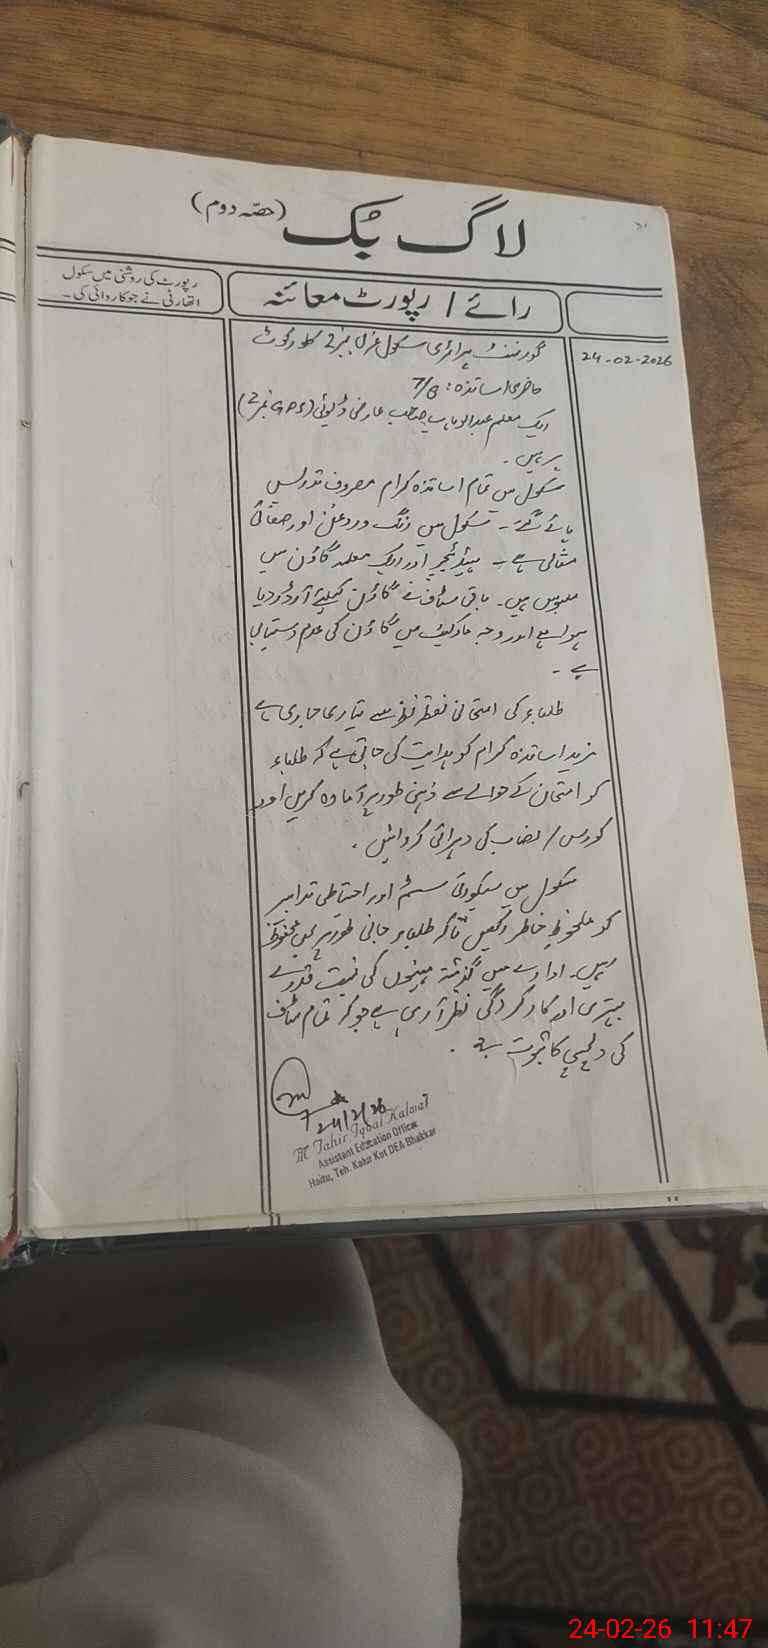 لاگ بُک (حصہ دوم)
رائے / رپورٹ معائنہ
رپورٹ کی روشنی میں سکول
اتھارٹی نے جو کاروائی کی۔
24-02-2026
گورنمنٹ پرائمری سکول نمبر 2 کلورکوٹ
حاضری اساتذہ: 7/8
ایک معلم عبدالوہاب صاحب عارضی ڈیوٹی (GPS نمبر 2)
پر ہیں۔
سکول میں تمام اساتذہ کرام مصروف تدریس
پائے گئے۔ سکول میں رنگ و روغن اور صفائی
مثالی ہے۔ ہیڈ ٹیچر اور ایک معلمہ گاؤن میں
ملبوس ہیں۔ باقی سٹاف نے گاؤن کیلئے آرڈر دیا
ہوا ہے اور وجہ مارکیٹ میں گاؤن کی عدم دستیابی
ہے۔
طلباء کی امتحانی نقطہ نظر سے تیاری جاری ہے
مزید اساتذہ کرام کو ہدایت کی جاتی ہے کہ طلباء
کو امتحان کے حوالے سے ذہنی طور پر آمادہ کریں اور
کورس / نصاب کی دہرائی کروائیں۔
سکول میں سیکورٹی سسٹم اور احتیاطی تدابیر
کو ملحوظ خاطر رکھیں تاکہ طلباء جانی طور پر بھی محفوظ
رہیں۔ ادارے میں گذشتہ مہینوں کی نسبت قدرے
بہتری اور کارکردگی نظر آ رہی ہے جو کہ تمام سٹاف
کی دلچسپی کا ثبوت ہے۔
24/2/26
M Tahir Iqbal Kalwal
Assistant Education Officer
Haitu, Teh. Kalur Kot DEA Bhakkar
24-02-26 11:47